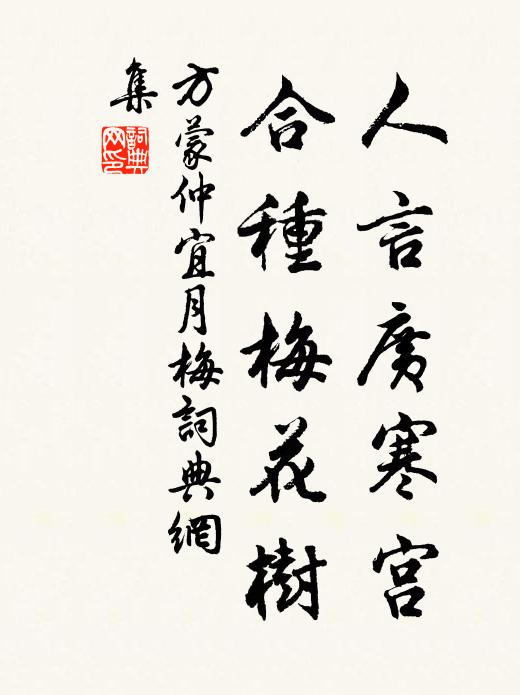 人言廣寒宮
合種梅花樹
方蒙仲宜月梅詞典網
集
詞典網印